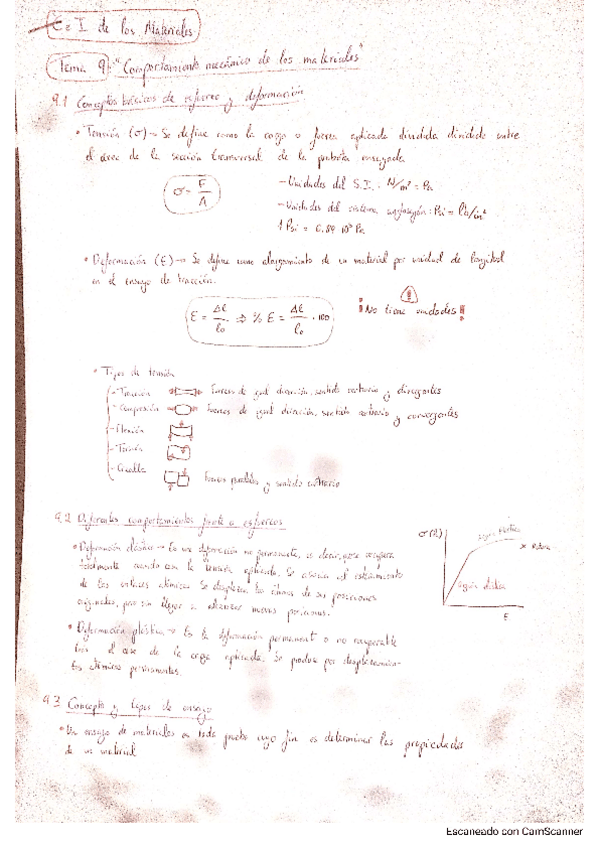 C e I de los Materiales
Tema 9: "Comportamiento mecánico de los materiales"
9.1 Conceptos básicos de esfuerzo y deformación
• Tensión (σ) → Se define como la carga o fuerza aplicada dividida dividida entre
el área de la sección transversal de la probeta ensayada
σ = F/A
- Unidades del S.I.: N/m² = Pa
- Unidades del sistema anglosajón: Psi = lb/in²
1 Psi = 6.89 10³ Pa
• Deformación (ε) → Se define como alargamiento de un material por unidad de longitud
en el ensayo de tracción.
ε = Δl/l₀ ⇒ % ε = Δl/l₀ · 100
¡¡No tiene unidades!!
• Tipos de tensión
- Tracción Fuerzas de igual dirección, sentido contrario y divergentes
- Compresión Fuerzas de igual dirección, sentido contrario y convergentes
- Flexión
- Torsión
- Cizalla Fuerzas paralelas y sentido contrario
9.2 Diferentes comportamientos frente a esfuerzos
• Deformación elástica → Es una deformación no permanente, es decir, que se recupera
totalmente cuando cesa la tensión aplicada. Se asocia al estiramiento
de los enlaces atómicos. Se desplazan los átomos de sus posiciones
originales, pero sin llegar a alcanzar nuevas posiciones.
σ (Pa)
región plástica
x Rotura
región elástica
ε
• Deformación plástica → Es la deformación permanente o no recuperable
tras el cese de la carga aplicada. Se produce por desplazamien-
tos atómicos permanentes.
9.3 Concepto y tipos de ensayo
• Un ensayo de materiales es toda prueba cuyo fin es determinar las propiedades
de un material
Escaneado con CamScanner